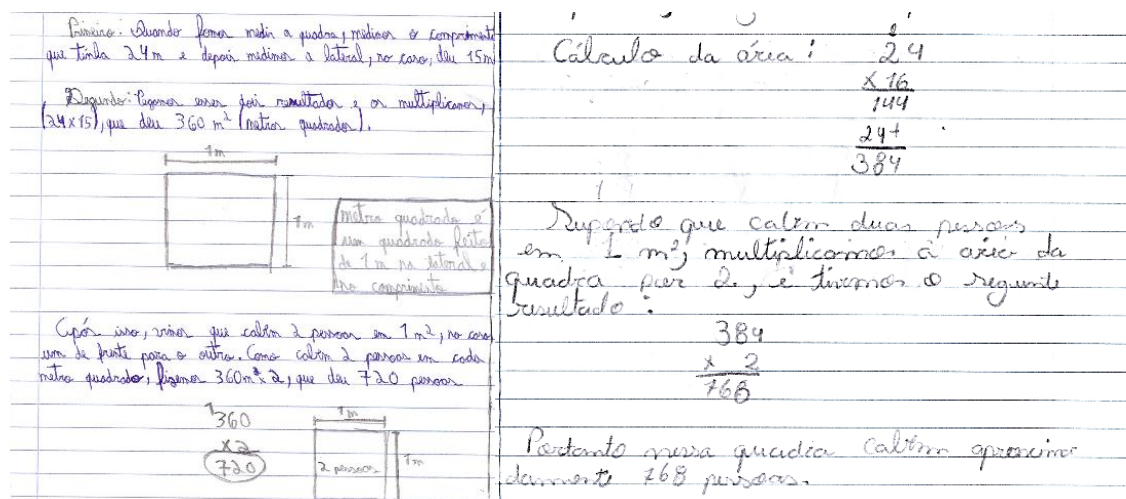 Primeiro: Quando fomos medir a quadra, medimos o comprimento
que tinha 24m e depois medimos a lateral, no caso, deu 15m
Segundo: Pegamos esses dois resultados e os multiplicamos,
(24x15), que deu 360 m² (metros quadrados).
1m
1m
metro quadrado é
um quadrado feito
de 1m na lateral e
no comprimento
Após isso, vimos que cabem 2 pessoas em 1m², no caso
um de frente para o outro. Como cabem 2 pessoas em cada
metro quadrado, fizemos 360m² x 2, que deu 720 pessoas
1
360
x2
720
1m
2 pessoas
1m
Cálculo da área:
2
24
x 16
144
24+
384
Supondo que cabem duas pessoas
em 1 m², multiplicamos a área da
quadra por 2, e tivemos o seguinte
resultado:
384
x 2
768
Portanto nessa quadra cabem aproxima
damente 768 pessoas.